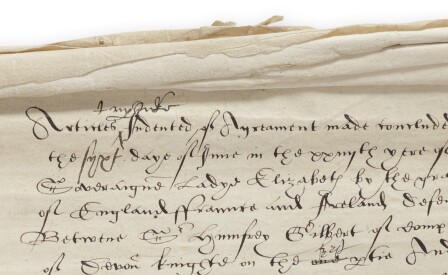 Articles Indented of Agreament made conclude
the syxt daye of June in the xxiiijth yere of
Soveraigne Ladye Elizabeth by the gra
of England ffraunce and Ireland defe
Betwene Sr Humfrey Gilbert of Comp
of Devon knight on the one ptie And